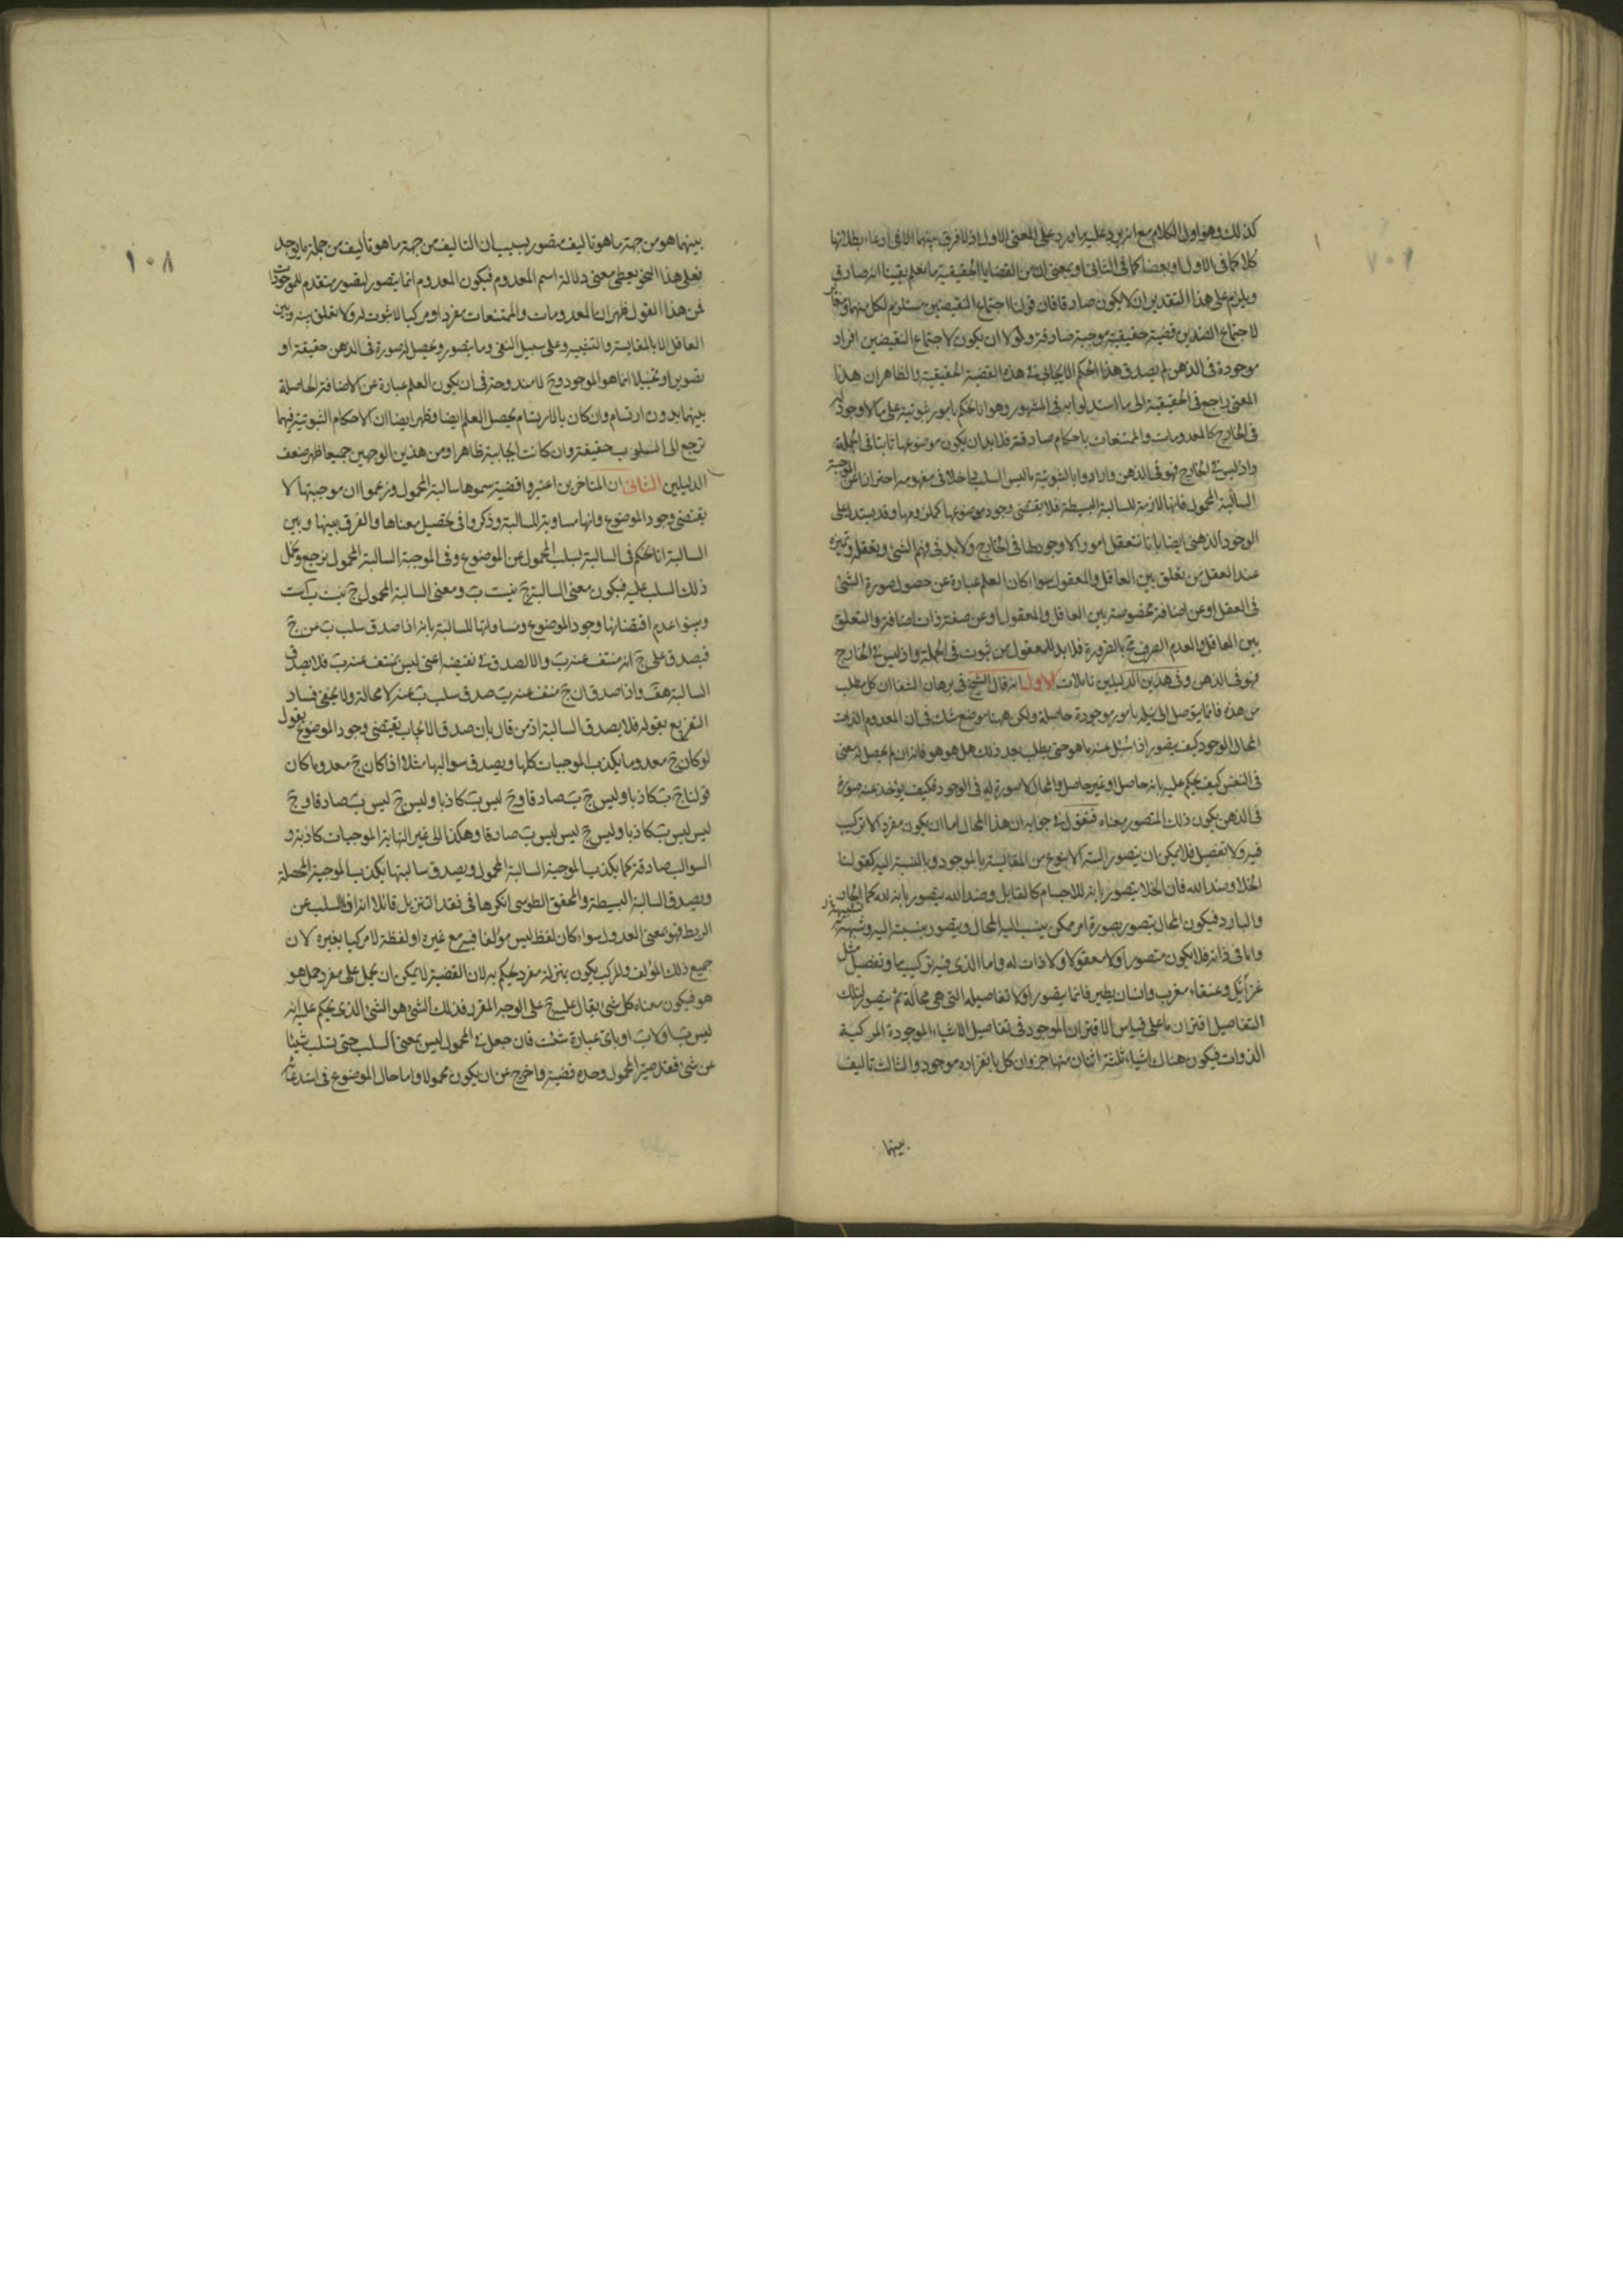 كذلك وهو اول الكلام مع انه يرد عليه ما يرد على المعنى الاول اذ لا فرق بينهما الا فى ادعاء بطلانها
كلا كما فى الاول او بعضا كما فى الثانى او بمعنى ان من القضايا الحقيقية ما نعلم يقينا انه صادق
ويلزم على هذا التقدير ان لا يكون صادقا فان قولنا اجتماع النقيضين مستلزم لكل منهما ومغاير
لاجتماع الضدين قضية حقيقية موجبة صادقة ولولا ان يكون لاجتماع النقيضين افراد
موجودة فى الذهن لم يصدق هذا الحكم الايجابى فى هذه القضية الحقيقية والظاهر ان هذا
المعنى راجع فى الحقيقة الى ما استدلوا به فى المشهور وهو انا نحكم بامور ثبوتية على ما لا وجود له
فى الخارج كالمعدومات والممتنعات باحكام صادقة فلا بد ان يكون موضوعها ثابتا فى الجملة
واذ ليس فى الخارج فهو فى الذهن وارادوا بالثبوتية ما ليس السلب داخلا فى مفهومه احترازا عن الموجبة
السالبة المحمول فانها لازمة للسالبة البسيطة فلا يقتضى وجود موضوعها كملزومها وقد يستدل على
الوجود الذهنى ايضا بانا نتعقل امورا لا وجود لها فى الخارج ولا بد فى فهم الشئ وتعقله وتميزه
عند العقل من تعلق بين العاقل والمعقول سواء كان العلم عبارة عن حصول صورة الشئ
فى العقل او عن اضافة مخصوصة بين العاقل والمعقول او عن صفة ذات اضافة والتعلق
بين العاقل والعدم الصرف مح بالضرورة فلا بد للمعقول من ثبوت فى الجملة واذ ليس فى الخارج
فهو فى الذهن وفى هذين الدليلين تاملات الاول انه قال الشيخ فى برهان الشفا ان كل مطلب
من هذه فانما يتوصل الى نيله بامور موجودة حاصلة ولكن ههنا موضع شك فى ان المعدوم الذات
المحال الوجود كيف يتصور اذا سئل عنه ما هو حتى يطلب بعد ذلك هل هو هو فانه ان لم يحصل له معنى
فى النفس كيف يحكم عليه بانه حاصل او غير حاصل والمحال لا صورة له فى الوجود فكيف يؤخذ عنه صورة
فى الذهن يكون ذلك المتصور معناه فنقول فى جوابه ان هذا المحال اما ان يكون مفردا لا تركيب
فيه ولا تفصيل فلا يمكن ان يتصور البتة الا بنوع من المقايسة بالموجود وبالنسبة اليه كقولنا
الخلا وضد الله فان الخلا يتصور بانه للاجسام كالقابل وضد الله يتصور بانه لله كما للحار
والبارد فيكون المحال يتصور بصورة امر ممكن ينسب اليه المحال ويتصور بنسبة اليه وشبيه به
واما فى ذاته فلا يكون متصورا ولا معقولا ولا ذات له واما الذى فيه تركيب ما وتفصيل مثل
عزائيل وعنقاء مغرب وانسان يطير فانما يتصور اولا تفاصيله التى هى محالة ثم يتصور لتلك
التفاصيل اقتران ما على قياس الاقتران الموجود فى تفاصيل الاشياء الموجودة المركبة
الذوات فيكون هناك اشياء ثلثة اثنان منها جزوان كل بانفراده موجود والثالث تاليف
بينهما
١٠٨
بينهما هو من جهة ما هو تاليف متصور بسبب ان التاليف من جهة ما هو تاليف من جملة ما يوجد
فعلى هذا النحو يعطى معنى دلالة اسم المعدوم فيكون المعدوم انما يتصور لتصور متقدم للموجودات
فمن هذا القول ظهر ان المعدومات والممتنعات مفردا ومركبا لا ثبوت له ولا تعلق بينه وبين
العاقل الا بالمقايسة والتشبيه وعلى سبيل النفى وما يتصور ويحصل له صورة فى الذهن حقيقة او
تصويرا وتخيلا انما هو الموجود وح لا مندوحة فى ان يكون العلم عبارة عن الاضافة الحاصلة
بينهما بدون ارتسام وان كان بالارتسام يحصل العلم ايضا وظهر ايضا ان الاحكام الثبوتية فيهما
ترجع الى السلوب حقيقة وان كانت ايجابية ظاهرا ومن هذين الوجهين جميعا ظهر ضعف
الدليلين الثانى ان المتاخرين اعتبروا قضية سموها سالبة المحمول وزعموا ان موجبتها لا
يقتضى وجود الموضوع وانها مساوية للسالبة وذكروا فى تحصيل معناها والفرق بينها وبين
السالبة انا نحكم فى السالبة بسلب المحمول عن الموضوع وفى الموجبة السالبة المحمول نرجع ونحمل
ذلك السلب عليه فيكون معنى السالبة ج نيست ب ومعنى السالبة المحمول ج نيست ب است
وبينوا عدم اقتضائها وجود الموضوع ومساواتها للسالبة بانه اذا صدق سلب ب عن ج
فيصدق على ج انه منتف عنه ب والا لصدق فى نقيضه اعنى ليس بمنتف عنه ب فلا يصدق
السالبة هف واذا صدق ان ج منتف عنه ب صدق سلب ب عنه لا محالة ولا يخفى فساد
التفريع بقوله فلا يصدق السالبة اذ من قال بان صدق الايجاب يقتضى وجود الموضوع يقول
لو كان ج معدوما يكذب الموجبات كلها ويصدق سوالبها مثلا اذا كان ج معدوما كان
قولنا ج ب كاذبا وليس ج ب صادقا وج ليس ب كاذبا وليس ج ليس ب صادقا وج
ليس ليس ب كاذبا وليس ج ليس ليس ب صادقا وهكذا الى غير النهاية الموجبات كاذبة و
السوالب صادقة كما يكذب الموجبة السالبة المحمول ويصدق سالبتها يكذب الموجبة المحصلة
ويصدق السالبة البسيطة والمحقق الطوسى انكرها فى نقد التنزيل قائلا اذا تاخر السلب عن
الربط فهو بمعنى العدول سواء كان لفظ ليس مؤلفا فيه مع غيره او لفظة لا مركبا بغيره لان
جميع ذلك المؤلف والمركب يكون بمنزلة مفرد يحكم به لان القضية لا يمكن ان يحمل على مفرد حمل هو
هو فيكون معناه كل شئ يقال عليه ج على الوجه المقرر فذلك الشئ هو الشئ الذى يحكم عليه انه
ليس ب او لا ب او باى عبارة شئت فان جعل فى المحمول ليس بمعنى السلب حتى يسلب شيئا
عن شئ فقد صير المحمول وحده قضية واخرج عن ان يكون محمولا واما حال الموضوع فى استدعائه